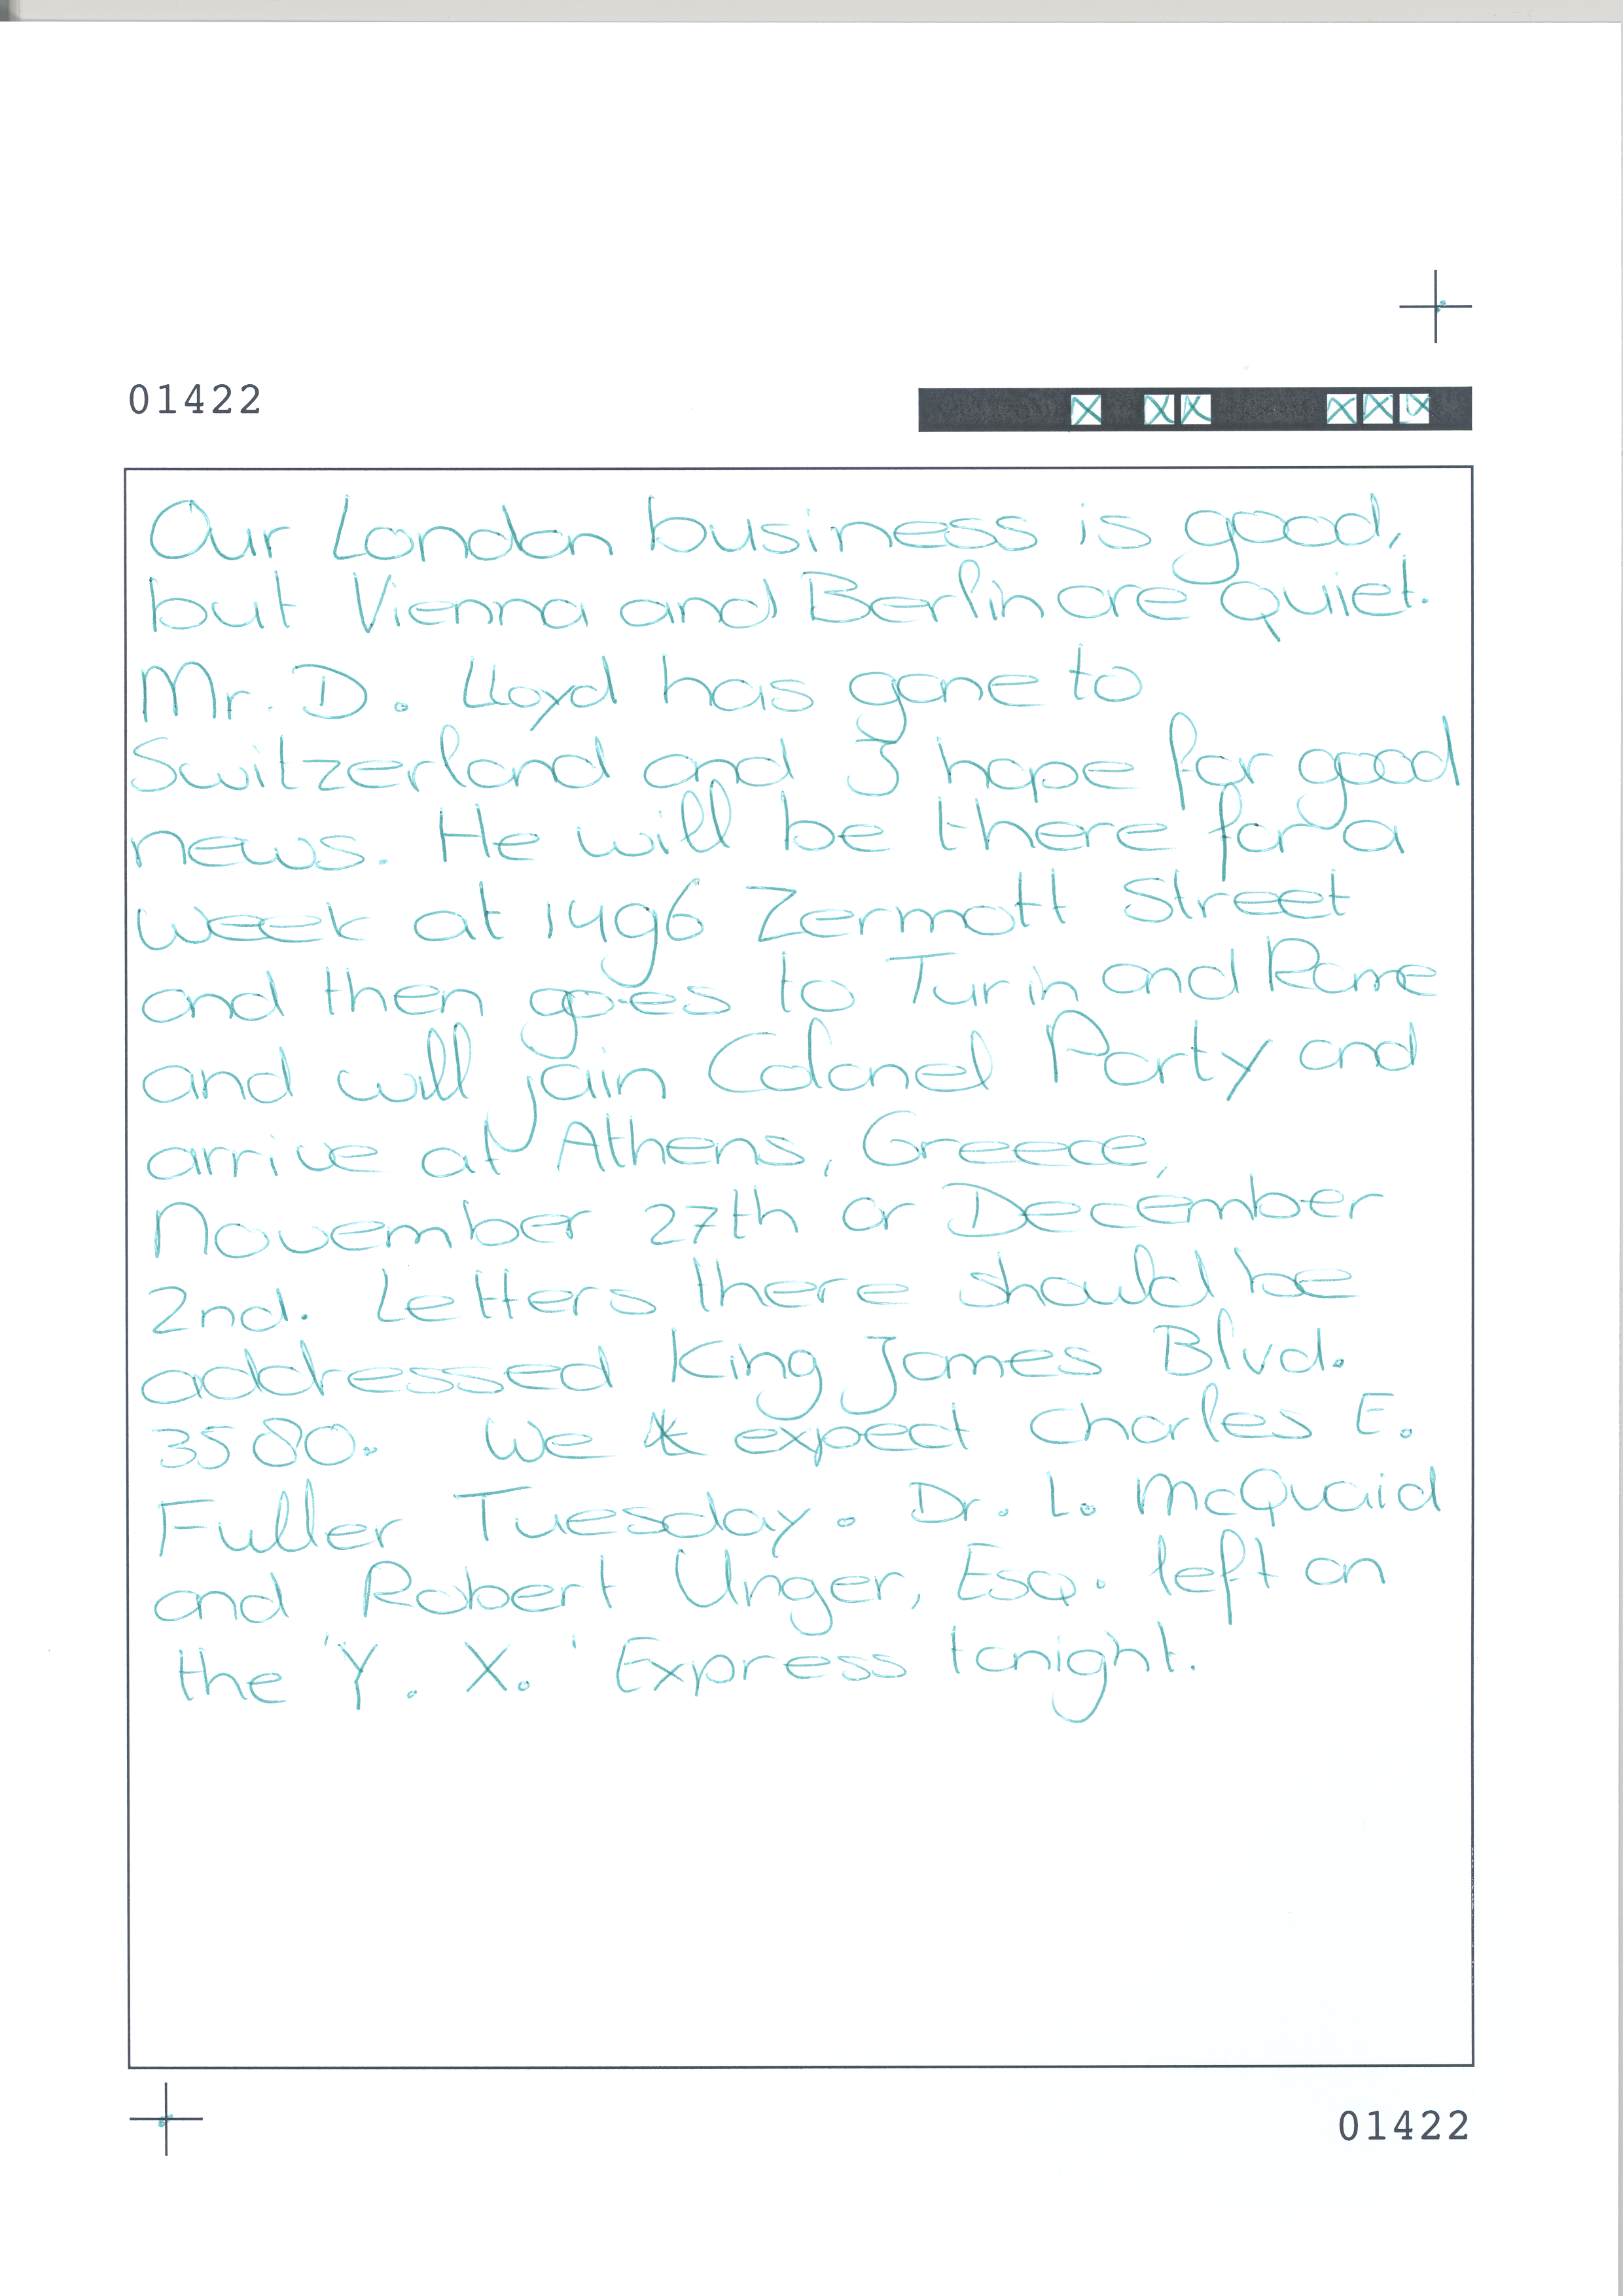 01422
Our London business is good,
but Vienna and Berlin are quiet.
Mr. D. Lloyd has gone to
Switzerland and I hope for good
news. He will be there for a
week at 1496 Zermott Street
and then goes to Turin and Rome
and will join Colonel Party and
arrive at Athens, Greece,
November 27th or December
2nd. Letters there should be
addressed King James Blvd.
3580. We expect Charles E.
Fuller Tuesday. Dr. L. McQuaid
and Robert Unger, Esq. left on
the 'Y. X.' Express tonight.
01422